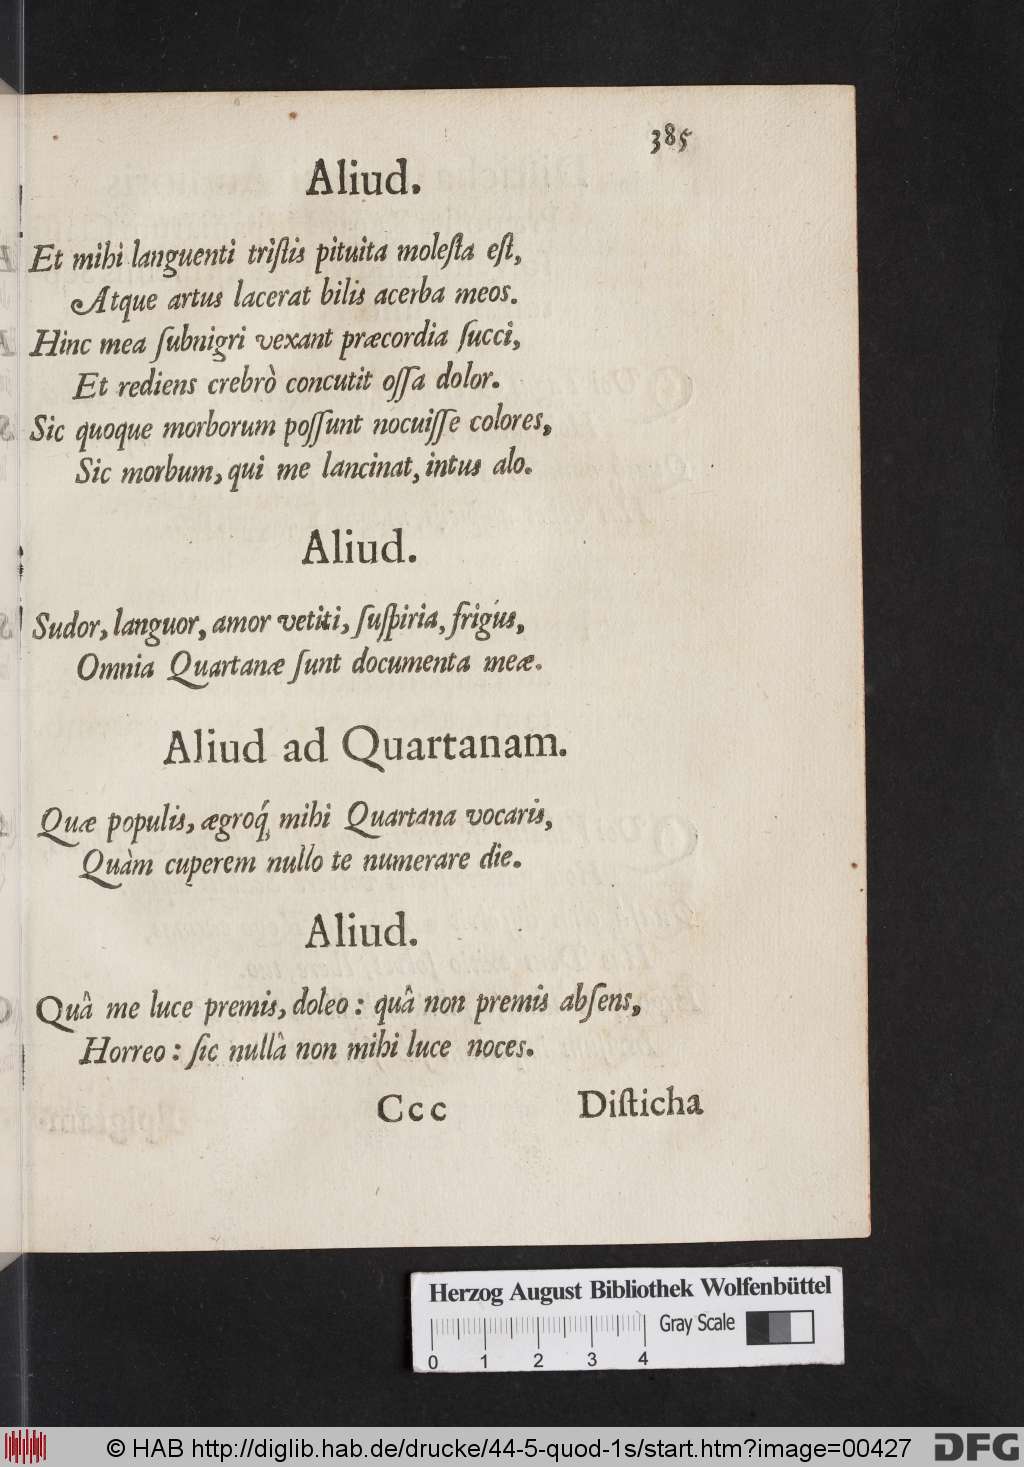 385
Aliud.
Et mihi languenti triſtis pituita moleſta eſt,
Atque artus lacerat bilis acerba meos.
Hinc mea ſubnigri vexant præcordia ſucci,
Et rediens crebrò concutit oſſa dolor.
Sic quoque morborum poſſunt nocuiſſe colores,
Sic morbum, qui me lancinat, intus alo.
Aliud.
Sudor, languor, amor vetiti, ſuſpiria, frigus,
Omnia Quartanæ ſunt documenta meæ.
Aliud ad Quartanam.
Quæ populis, ægroq́; mihi Quartana vocaris,
Quàm cuperem nullo te numerare die.
Aliud.
Quâ me luce premis, doleo: quâ non premis abſens,
Horreo: ſic nullâ non mihi luce noces.
Ccc Diſticha
Herzog August Bibliothek Wolfenbüttel
Gray Scale
0 1 2 3 4
© HAB http://diglib.hab.de/drucke/44-5-quod-1s/start.htm?image=00427
DFG